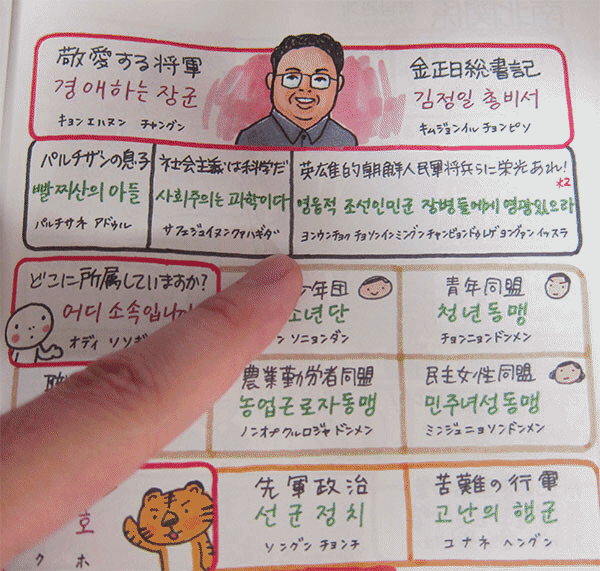 敬愛する将軍
경애하는 장군
キョンエハヌン チャングン
金正日総書記
김정일 총비서
キムジョンイル チョンピソ
パルチザンの息子
빨찌산의 아들
パルチサネ アドゥル
社会主義は科学だ
사회주의는 과학이다
サフェジュイヌンクァハギダ
英雄的朝鮮人民軍将兵らに栄光あれ!
*2
영웅적 조선인민군 장병들에게 영광있으라
ヨンウンチョク チョソンインミングン チャンビョンドゥレゲヨングァン イッスラ
どこに所属していますか?
어디 소속입니
オディ ソソギ
年団
소년단
ン ソニョンダン
青年同盟
청년동맹
チョンニョンドンメン
農業勤労者同盟
농업근로자동맹
ノンオプクルロジャドンメン
民主女性同盟
민주녀성동맹
ミンジュニョソンドンメン
호
ク ホ
先軍政治
선군정치
ソングンチョンチ
苦難の行軍
고난의 행군
コナネ ヘングン